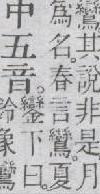 鸞其說非是月
為名春言鸞夏
鈴像鑾下曰鸞
中五音